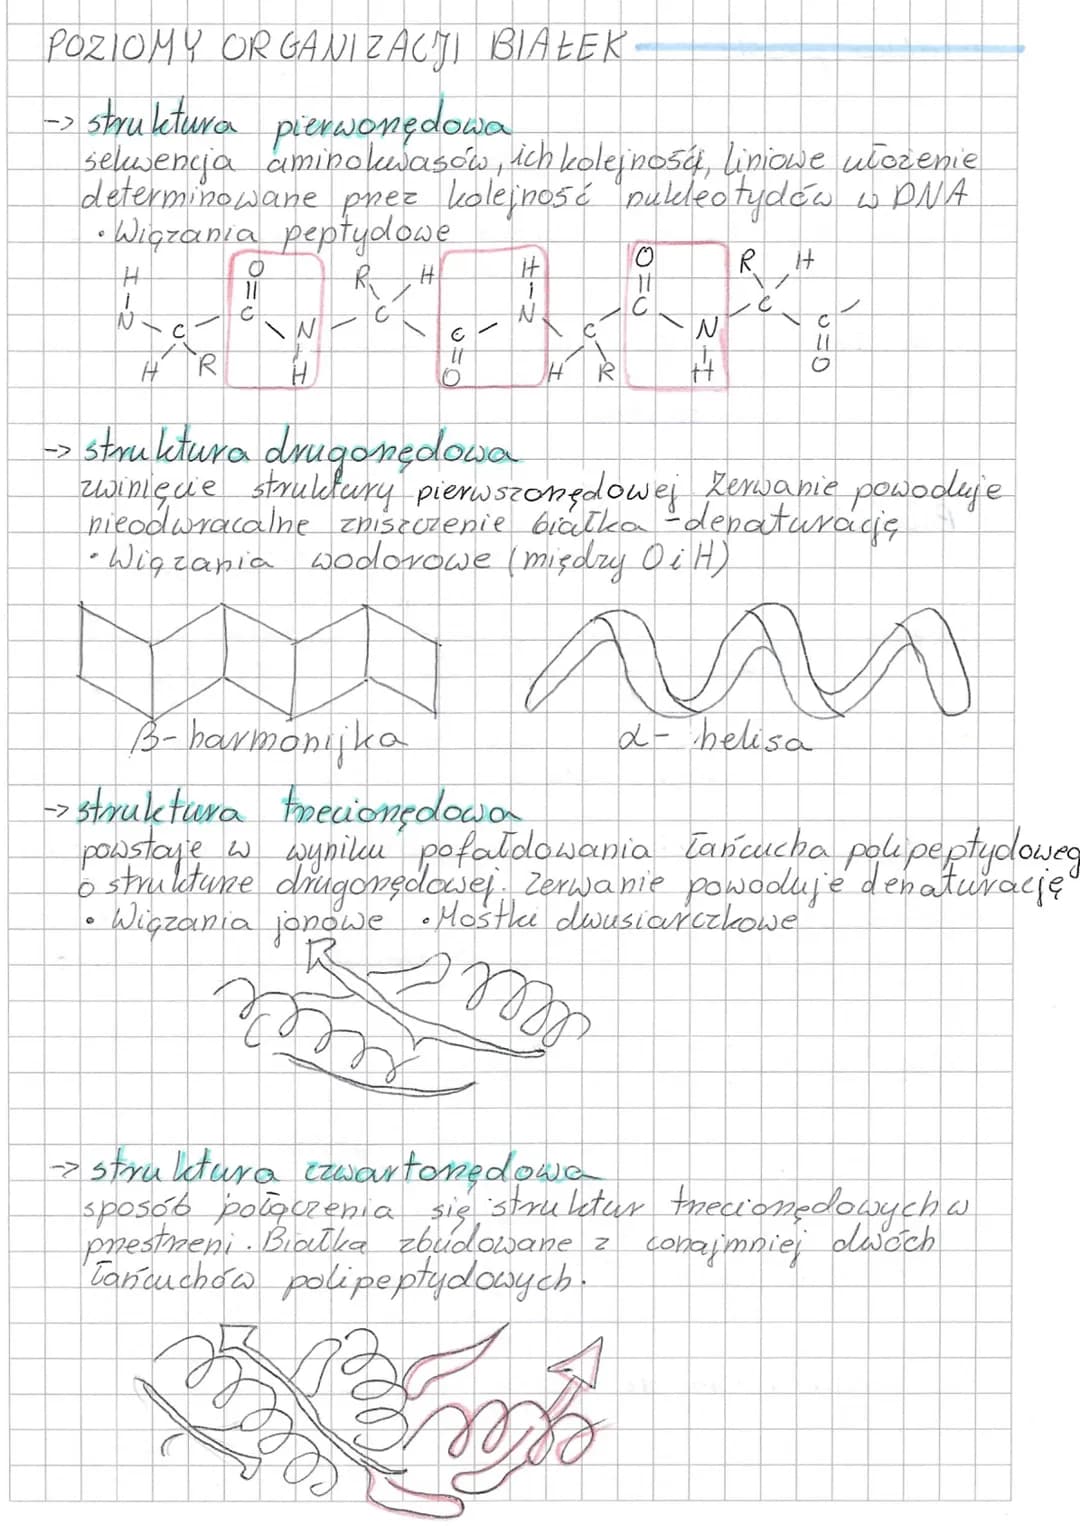 POZIOMY ORGANIZACJI BIAŁEK
-> struktura pierworzędowa
sekwencja aminokwasów, ich kolejność, liniowe ułożenie
determinowane przez kolejność nukleotydów w DNA
• Wiązania peptydowe
H O R H H O R H
N C C N C N C C N C C
H R H O H R H O
-> struktura drugorzędowa
zwinięcie struktury pierwszorzędowej Zerwanie powoduje
nieodwracalne zniszczenie białka - denaturację
• Wiązania wodorowe (między O i H)
β-harmonijka α- helisa
-> struktura trzeciorzędowa
powstaje w wyniku pofałdowania łańcucha polipeptydoweg
o strukturze drugorzędowej. Zerwanie powoduje denaturację
• Wiązania jonowe • Mostki dwusiarczkowe
-> struktura czwartorzędowa
sposób połączenia się struktur trzeciorzędowych w
przestrzeni. Białka zbudowane z conajmniej dwóch
łańcuchów polipeptydowych.